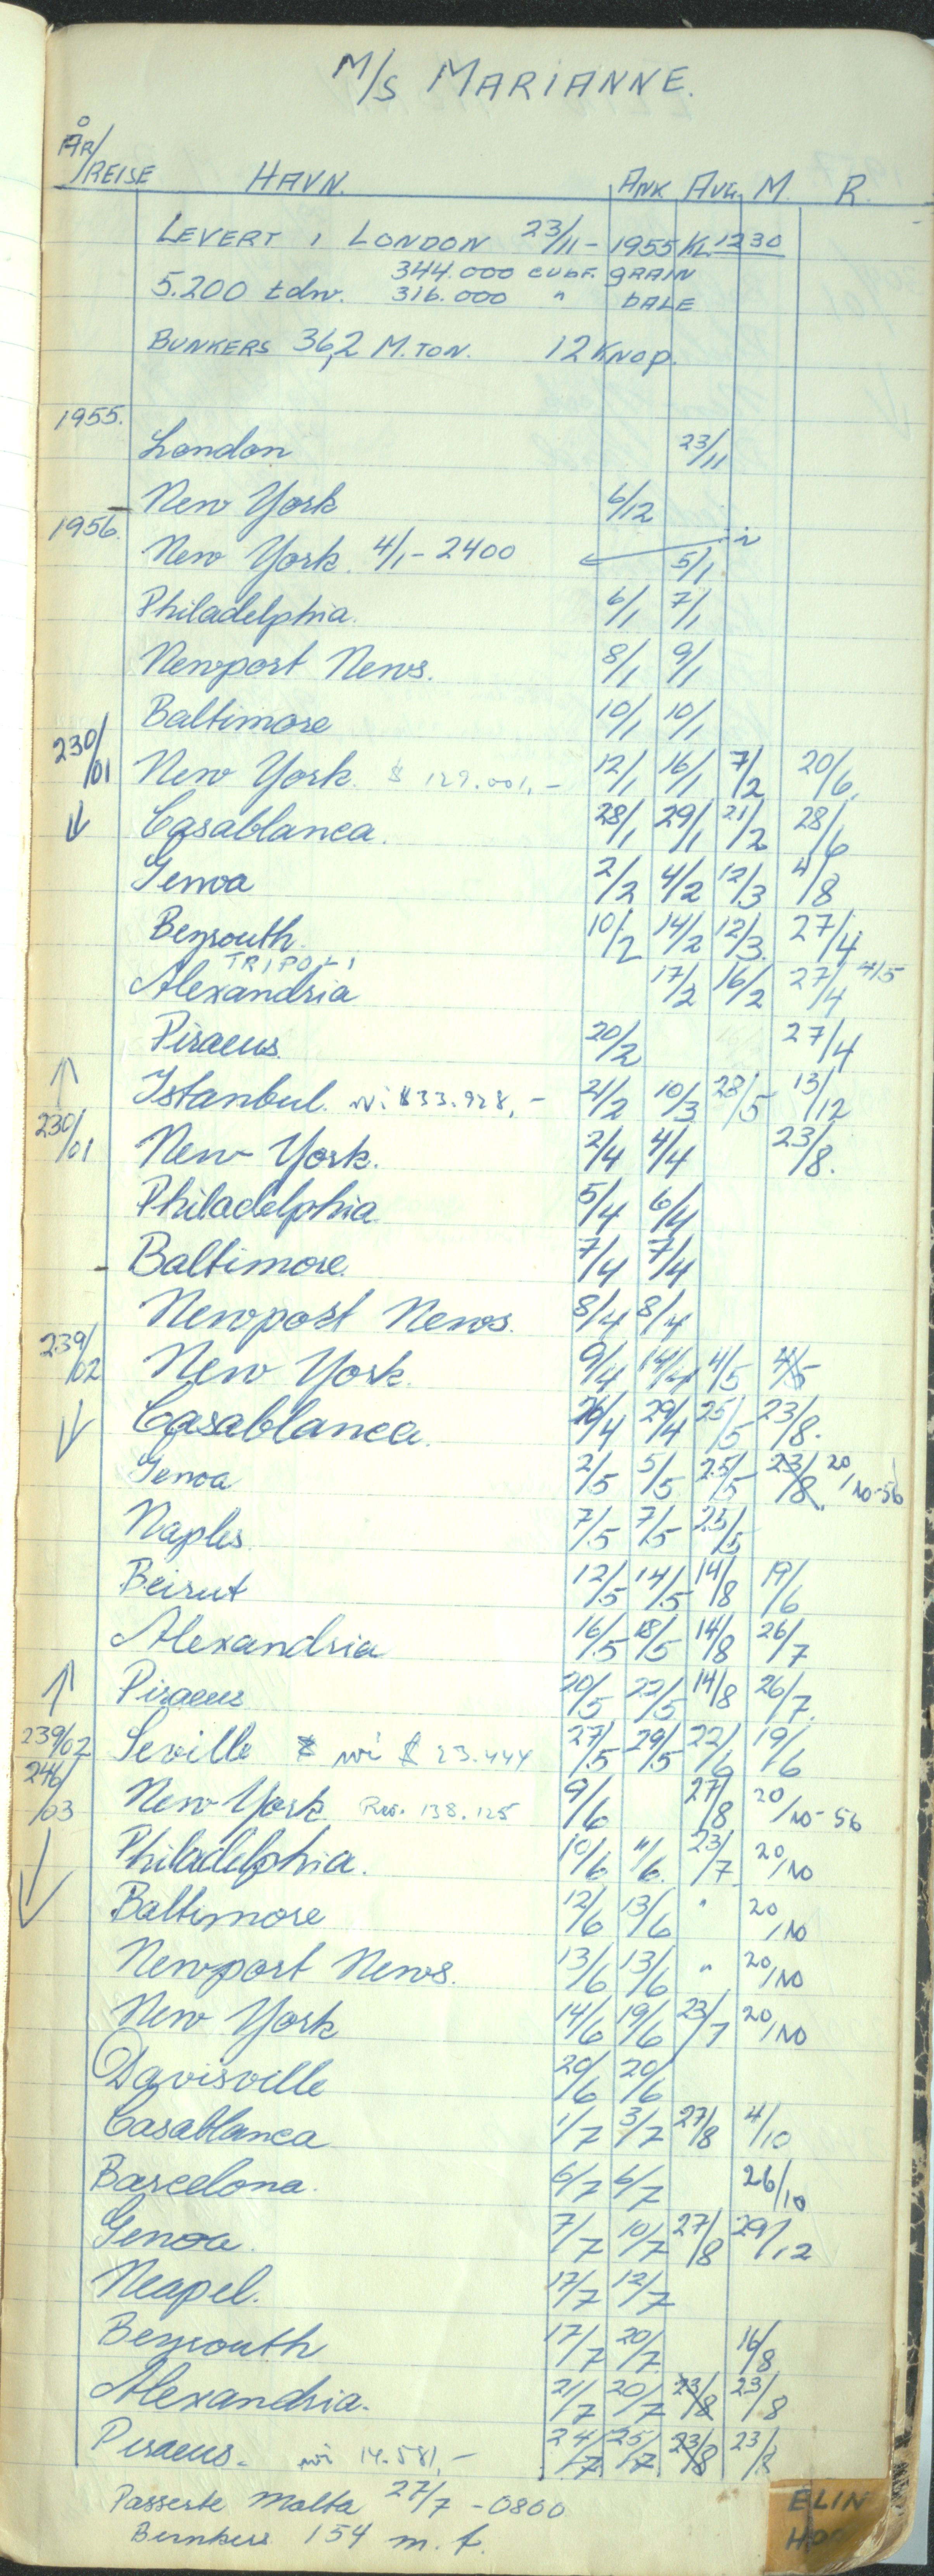 M/S MARIANNE.
ÅR/REISE HAVN. ANK AVG. M. R.
LEVERT I LONDON 23/11 - 1955 KL. 1230
344.000 CUBF. GRAIN
5.200 tdw. 316.000 " BALE
BUNKERS 36,2 M.TON. 12 KNOP.
1955.
London 23/11
New York 6/12
1956.
New York. 4/1 - 2400 5/1
Philadelphia. 6/1 7/1
Newport News. 8/1 9/1
Baltimore 10/1 10/1
230/01 New York. $ 129.001,- 12/1 16/1 7/2 20/6.
↓ Casablanca. 28/1 29/1 21/2 28/6
Genoa 2/2 4/2 12/3 4/8
Beyrouth. 10/2 14/2 12/3. 27/4
TRIPOLI
Alexandria 17/2 16/2 27/4 4/5
Piraeus. 20/2 27/4
↑ Istanbul. wi $33.928,- 21/2 10/3 28/5 13/12
230/01 New York. 2/4 4/4 23/8.
Philadelphia. 5/4 6/4
- Baltimore. 7/4 7/4
Newport News. 8/4 8/4
239/02 New York. 9/4 14/4 4/5 4/5
↓ Casablanca. 26/4 29/4 25/5 23/8.
Genoa 2/5 5/5 25/5 23/8. 20/10-56
Naples 7/5 7/5 23/5
Beirut 12/5 14/5 14/8 19/6
Alexandria 16/5 18/5 14/8 26/7
↑ Piraeus 20/5 22/5 14/8 26/7.
239/02 Seville wi $ 23.444 27/5 29/5 22/6 19/6
246/03 New York. Rev. 138.125 9/6 27/8 20/10-56
↓ Philadelphia. 10/6 11/6. 23/7. 20/10
Baltimore 12/6 13/6 " 20/10
Newport News. 13/6 13/6 " 20/10
New York 14/6 19/6 23/7 20/10
Davisville 20/6 20/6
Casablanca 1/7 3/7 27/8 4/10
Barcelona. 6/7 6/7 26/10
Genoa. 7/7 10/7 27/8 29/12
Neapel. 17/7 12/7
Beyrouth 17/7 20/7 16/8
Alexandria. 21/7 20/7 23/8 23/8
Piraeus. wi 14.581,- 24/7 25/7 23/8 23/8
Passerte Malta 27/7 - 0800
Bunkers 154 m.t.
ELIN